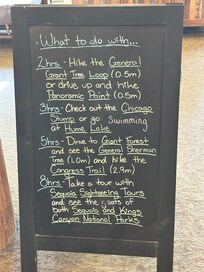 What to do with...
2hrs - Hike the General
Grant Tree Loop (0.5m)
or drive up and hike
Panoramic Point (0.5m)
3hrs - Check out the Chicago
Stump or go Swimming
at Hume Lake
5hrs - Drive to Giant Forest
and see the General Sherman
Tree (1.0m) and hike the
Congress Trail (2.9m)
8hrs - Take a tour with
Sequoia Sightseeing Tours
and see the
of
both Sequoia and Kings
Canyon National Parks